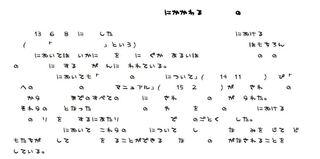 にかかわる の
13 6 8 に した における
( 「 」という) はもちろん
においては いかに を に ぐか あるいは の の
の に する が んに われている。
においても「 の について」( 14 11 ) び「
への の マニュアル」( 15 2 ) が され の
から までのすべての に され が られた。
それらの となった の や を の における
の り を するにあたり で のごとく した。
において これらの について し な みを じて ど
もたちが して を ることができる な の がなされることを
している。